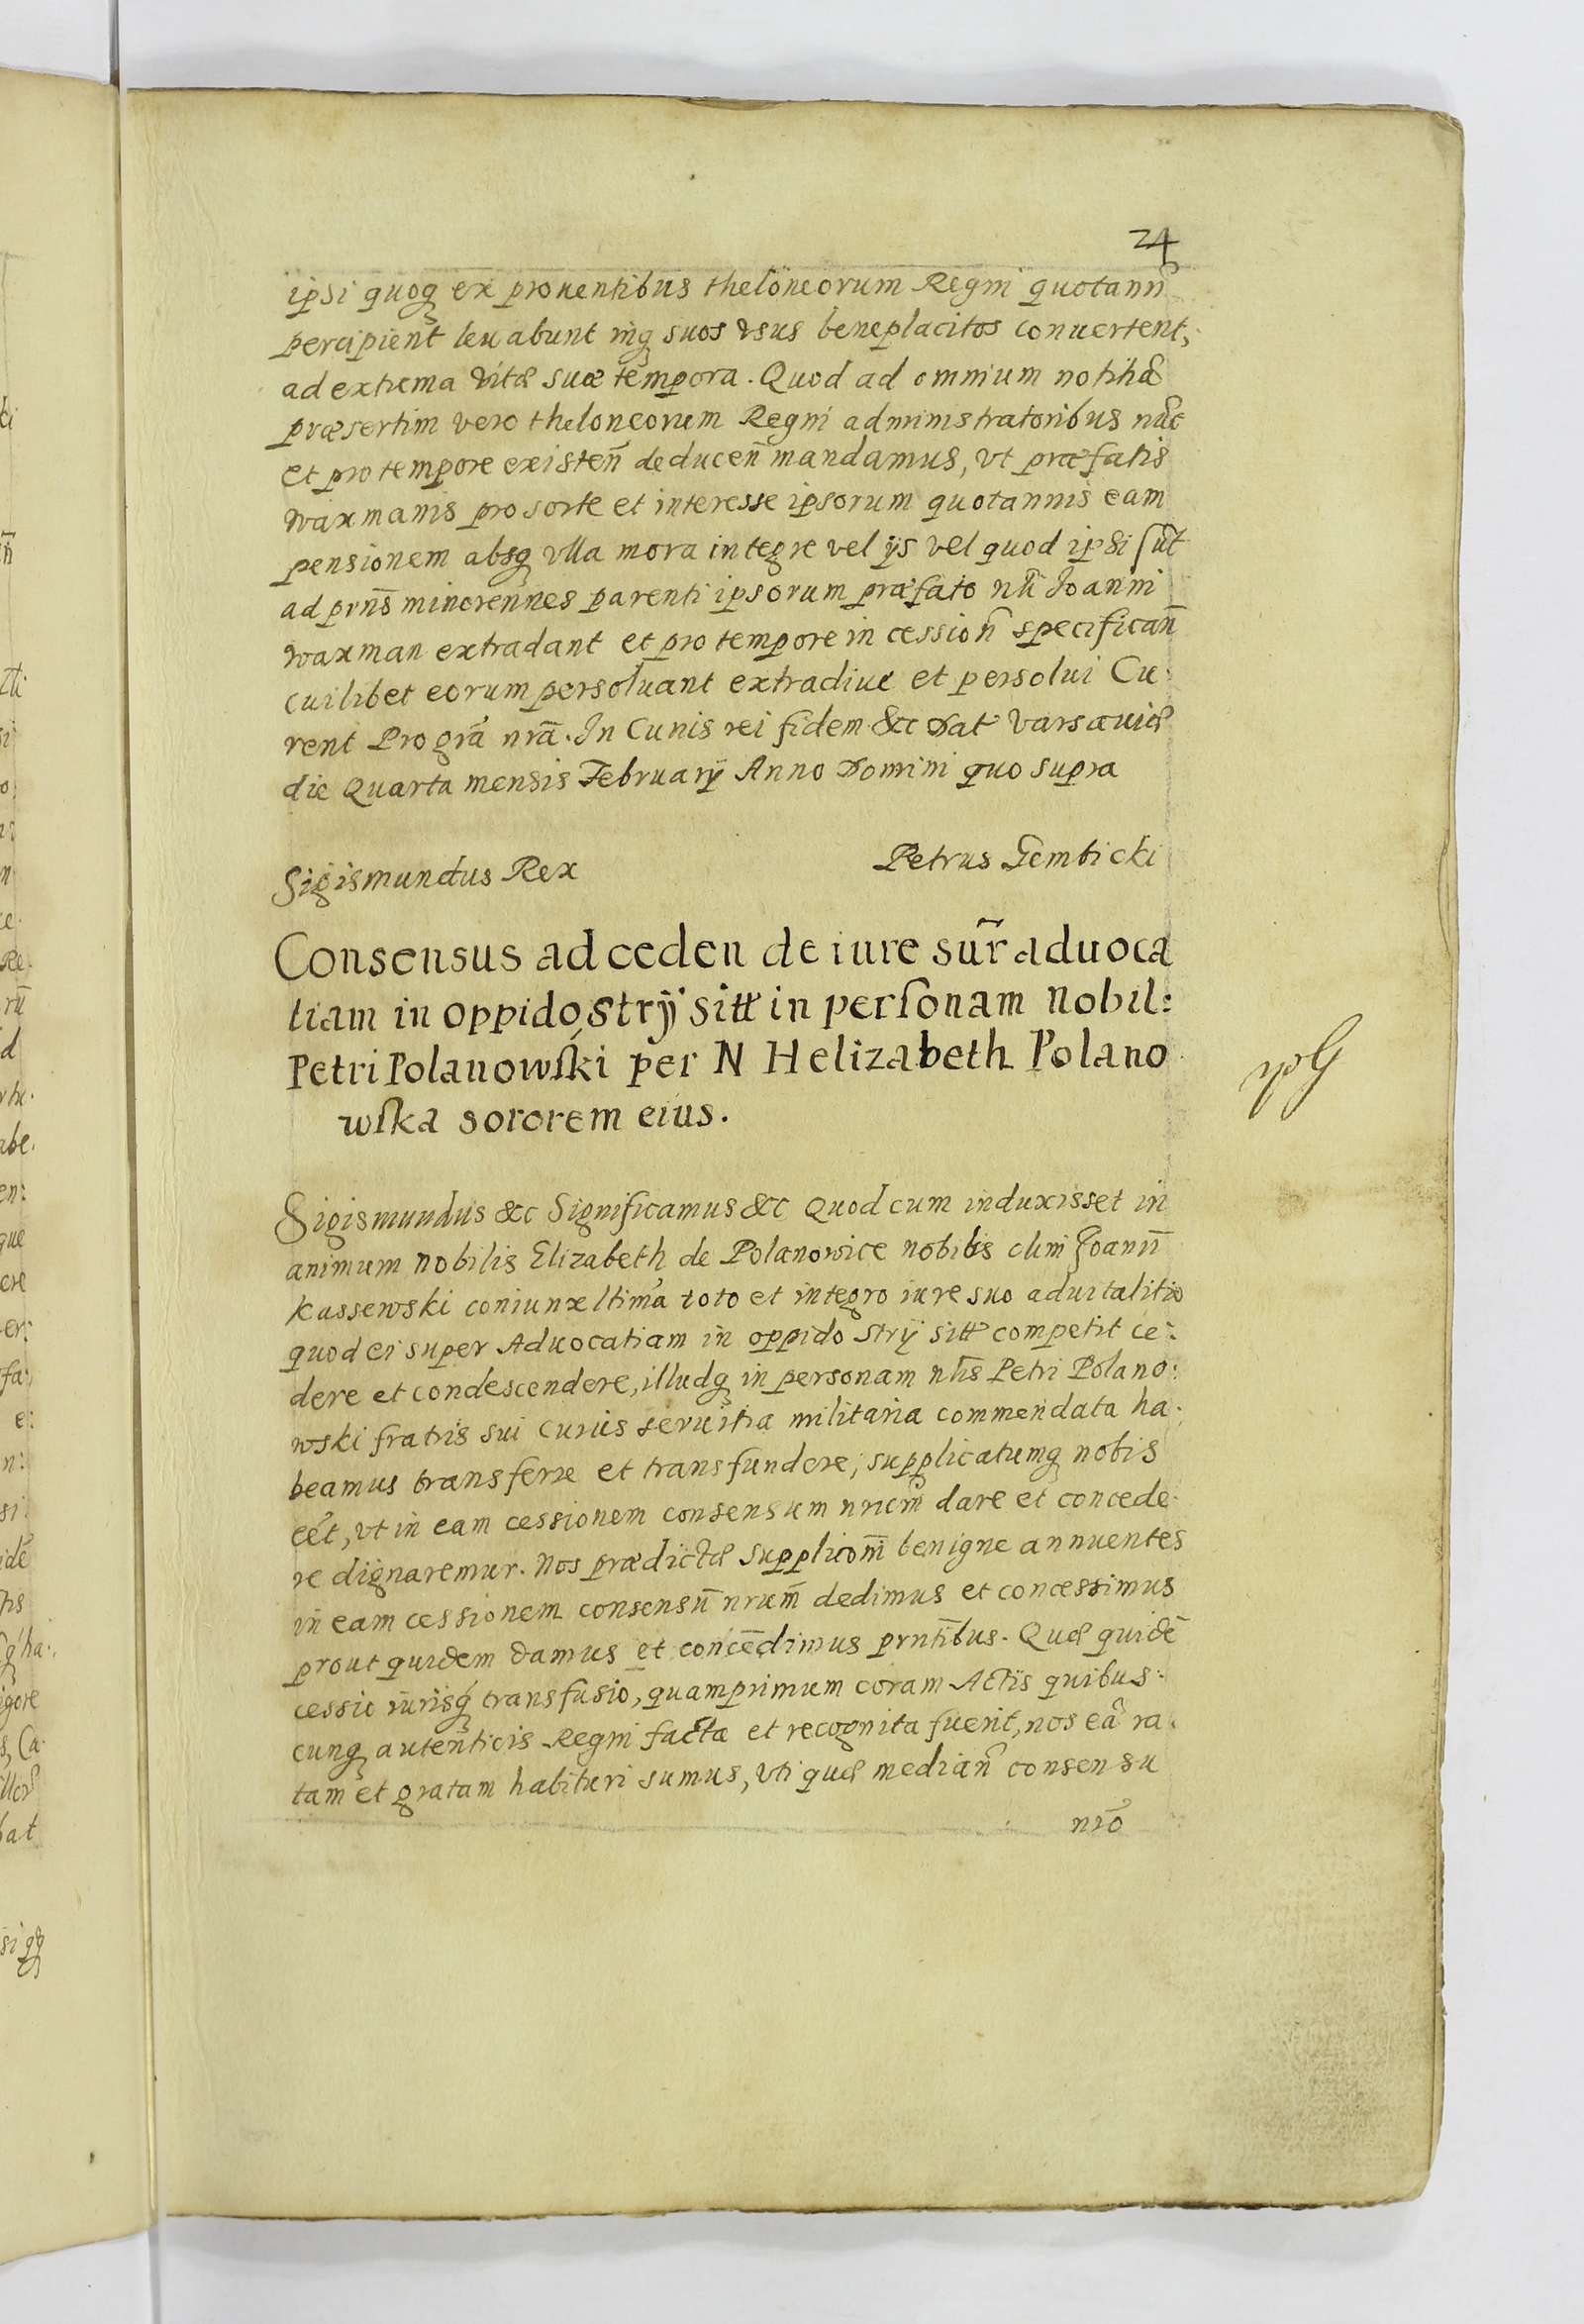 24
ipsi quoq ex prouentibus theloneorum Regni quotann̄
percipient leuabunt inq suos vsus beneplacitos conuertent,
ad extrema vitæ suæ tempora. Quod ad omnium notitiā
præsertim vero theloneorum Regni administratoribus nūc
et pro tempore existen̄ deducen̄ mandamus, vt præfatis
waxmanis pro sorte et interesse ipsorum quotannis eam
pensionem absq vlla mora integre vel ijs vel quod ipsi sūt
ad prn̄s minorennes parenti ipsorum præfato nli Joanni
waxman extradant et pro tempore in cession̄ specifican̄
cuilibet eorum persoluant extradiue et persolui Cu:
rent Pro grā nrā. In Cuius rei fidem &c Dat Varsauiæ
die Quarta mensis Februarij Anno Domini quo supra
Sigismundus Rex
Petrus Gembicki
Consensus ad ceden de iure sūr aduoca
tiam in oppido Stryj sitt in perſonam Nobil:
Petri Polanowſki per N Helizabeth Polano
wſka sororem eius.
Sigismundus &c Significamus &c Quod cum induxisset in
animum nobilis Elizabeth de Polanowice nobilis olim Joann̄
Kassewski coniunx ltima toto et integro iure suo aduitalitio
quod ei super Aduocatiam in oppido Stryj sitt competit ce:
dere et condescendere, illudq in personam nlis Petri Polano:
wski fratris sui cuius seruitia militaria commendata ha:
beamus transferre et transfundere, supplicatumq nobis
eēt, vt in eam cessionem consensum nrum̄ dare et concede:
re dignaremur. Nos prædictæ supplicōni benigne annuentes
in eam cessionem consensū nrum̄ dedimus et concessimus
prout quidem damus et concēdimus prntībus. Quæ quidē
cessio iurisq transfusio, quamprimum coram Actis quibus:
cunq autenticis Regni facta et recognita fuerit, nos eā ra:
tam et gratam habituri sumus, vti quæ median̄ consensu
nrō